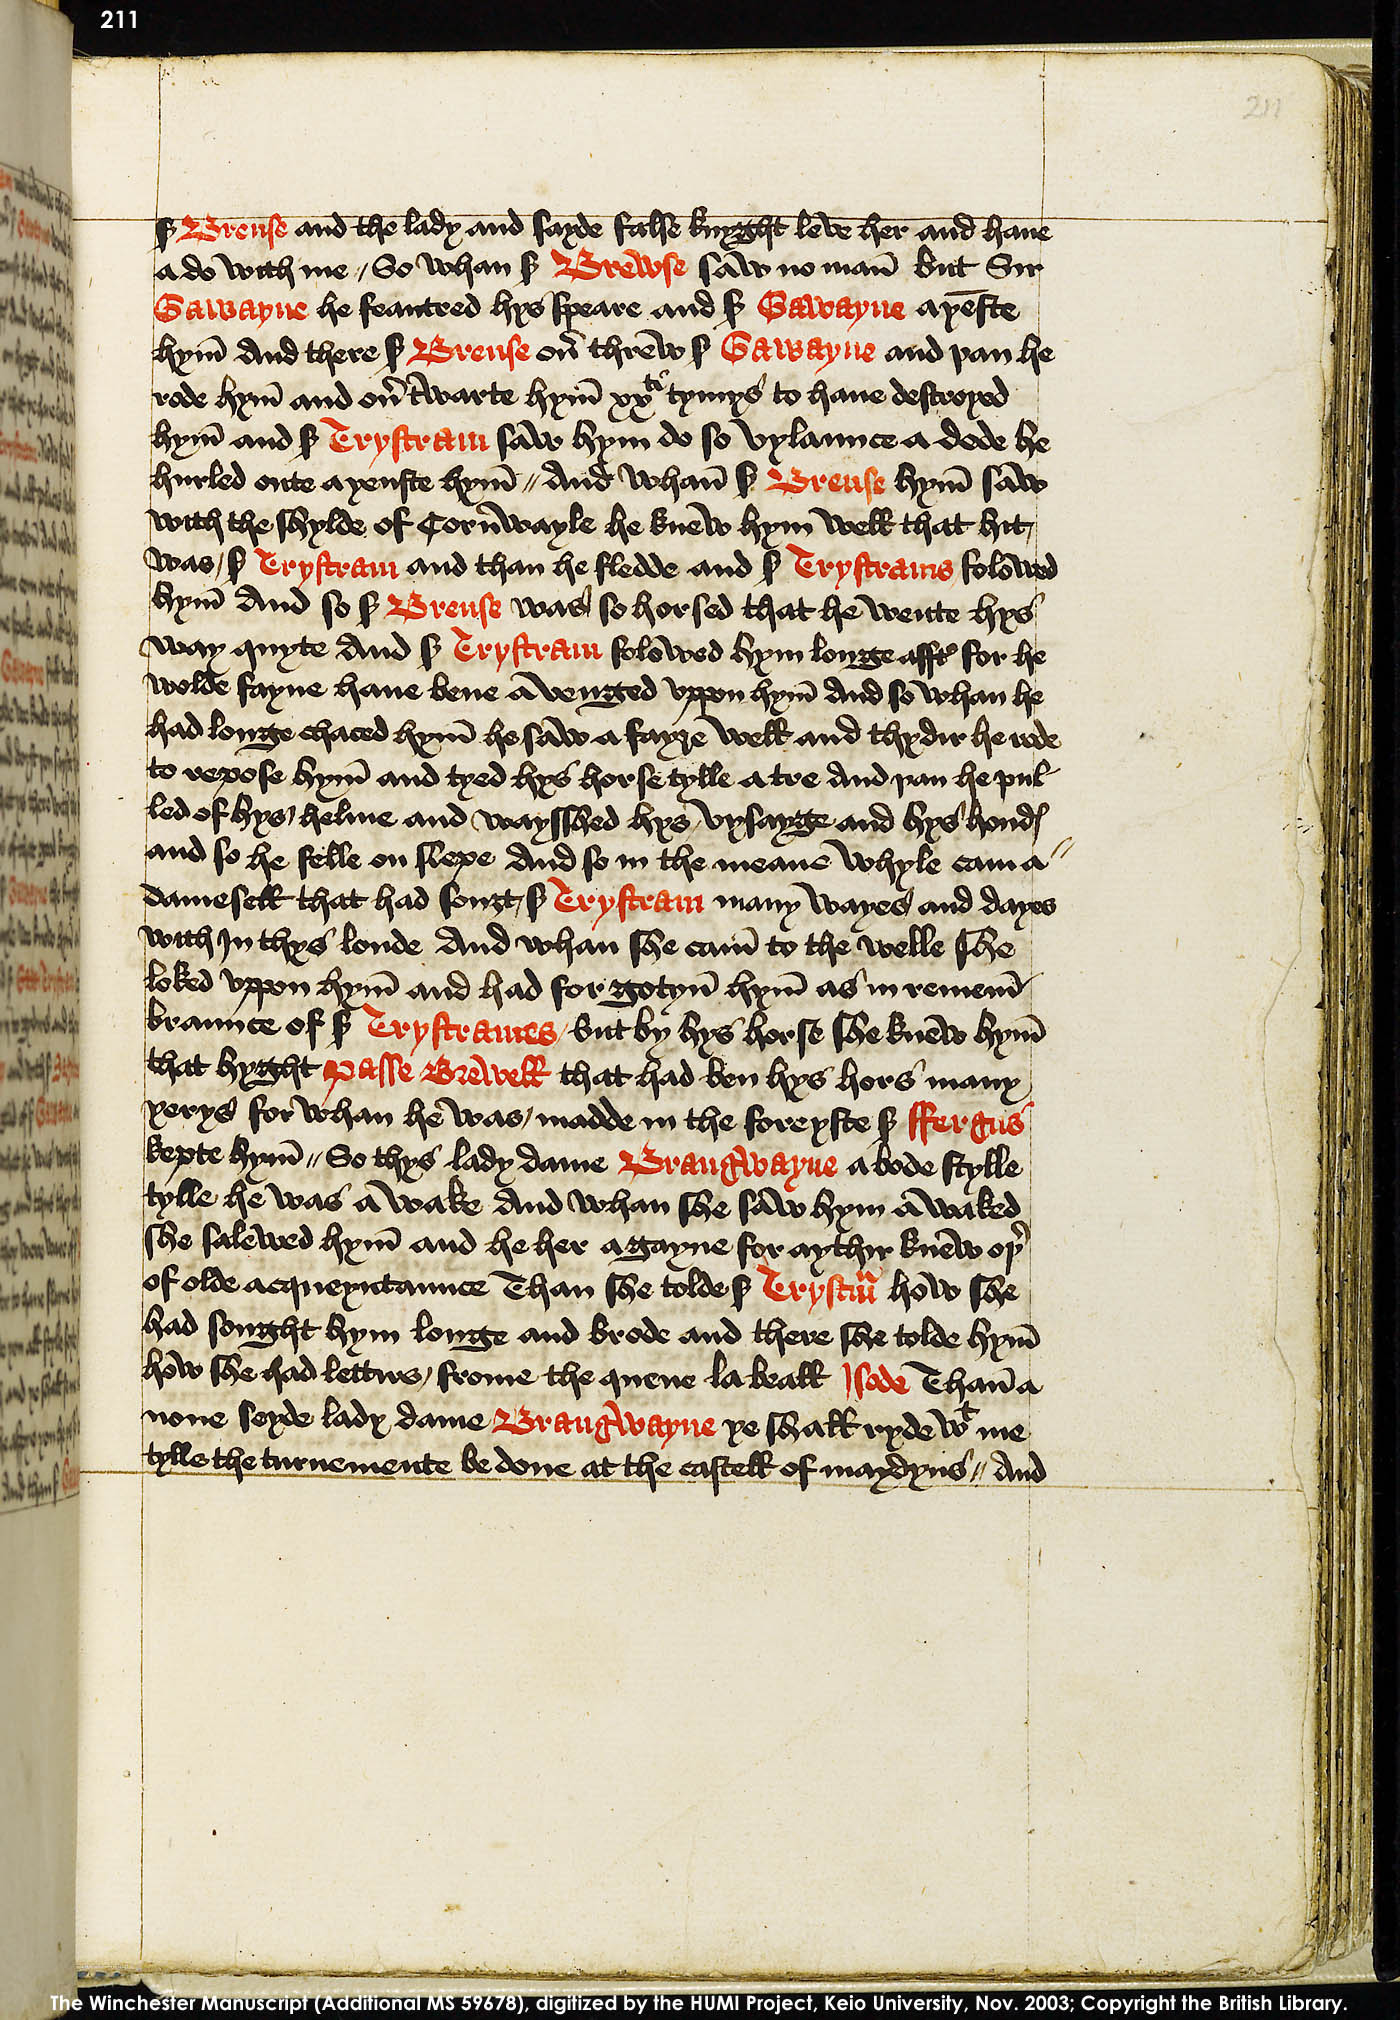 211
211
sʳ Breuse and the lady and sayde false knyght leve her and haue
a do with me // So whan sʳ Brewse saw no man̄ but Sir
Gawayne he feautred hys speare and sʳ Gawayne ayēste
hym̄ And there sʳ Breuse ouʳ threw sʳ Gawayne and þan he
rode hym̄ and ouʳ twarte hym̄ xxᵗⁱ tymys to haue destroyed
hym̄ and sʳ Trystram saw hym do so vylaunce a dede he
hurled oute ayenste hym̄ // And whan̄ sʳ Breuse hym̄ saw
with the shylde of Cornwayle he knew hym well that hit
was / sʳ Trystram and than he fledde and sʳ Trystrams folowed
hym̄ And so sʳ Breuse was so horsed that he wente hys
way quyte And sʳ Trystram folowed hym longe afftʳ for he
wolde fayne haue bene a venged vppon hym̄ And so whan he
had longe chaced hym̄ he saw a fayre well and thydir he rode
to repose hym̄ and tyed hys horse tylle a tre And þan he pul
led of hys / helme and waysshed hys vysayge and hys hondꝭ
and so he felle on slepe And so in the meane whyle cam a //
damesell that had sougt / sʳ Trystram many wayes and dayes
with In thys londe And whan she cam̄ to the welle she
loked vppon hym̄ and had for gotyn̄ hym̄ as in remem̄
braunce of sʳ Trystrames / but by hys horse she knew hym̄
that hyght Passe Brewell that had ben hys hors many
yerys for whan he was / madde in the foreyste sʳ ffergus
kepte hym̄ // So thys lady dame Braugwayne a bode stylle
tylle he was a wake And whan she saw hym a waked
she salewed hym̄ and he her agayne for aythir knew oþʳ
of olde acqueyntaunce Than she tolde sʳ Trystᵃm how she
had sought hym longe and brode and there she tolde hym̄
how she had lettirs / frome the quene la beall Isode Than̄ a
none seyde lady dame Braugwayne ye shall ryde wᵗ me
tylle the turnemente be done at the castell of maydyns // And
The Winchester Manuscript (Additional MS 59678), digitized by the HUMI Project, Keio University, Nov. 2003; Copyright the British Library.